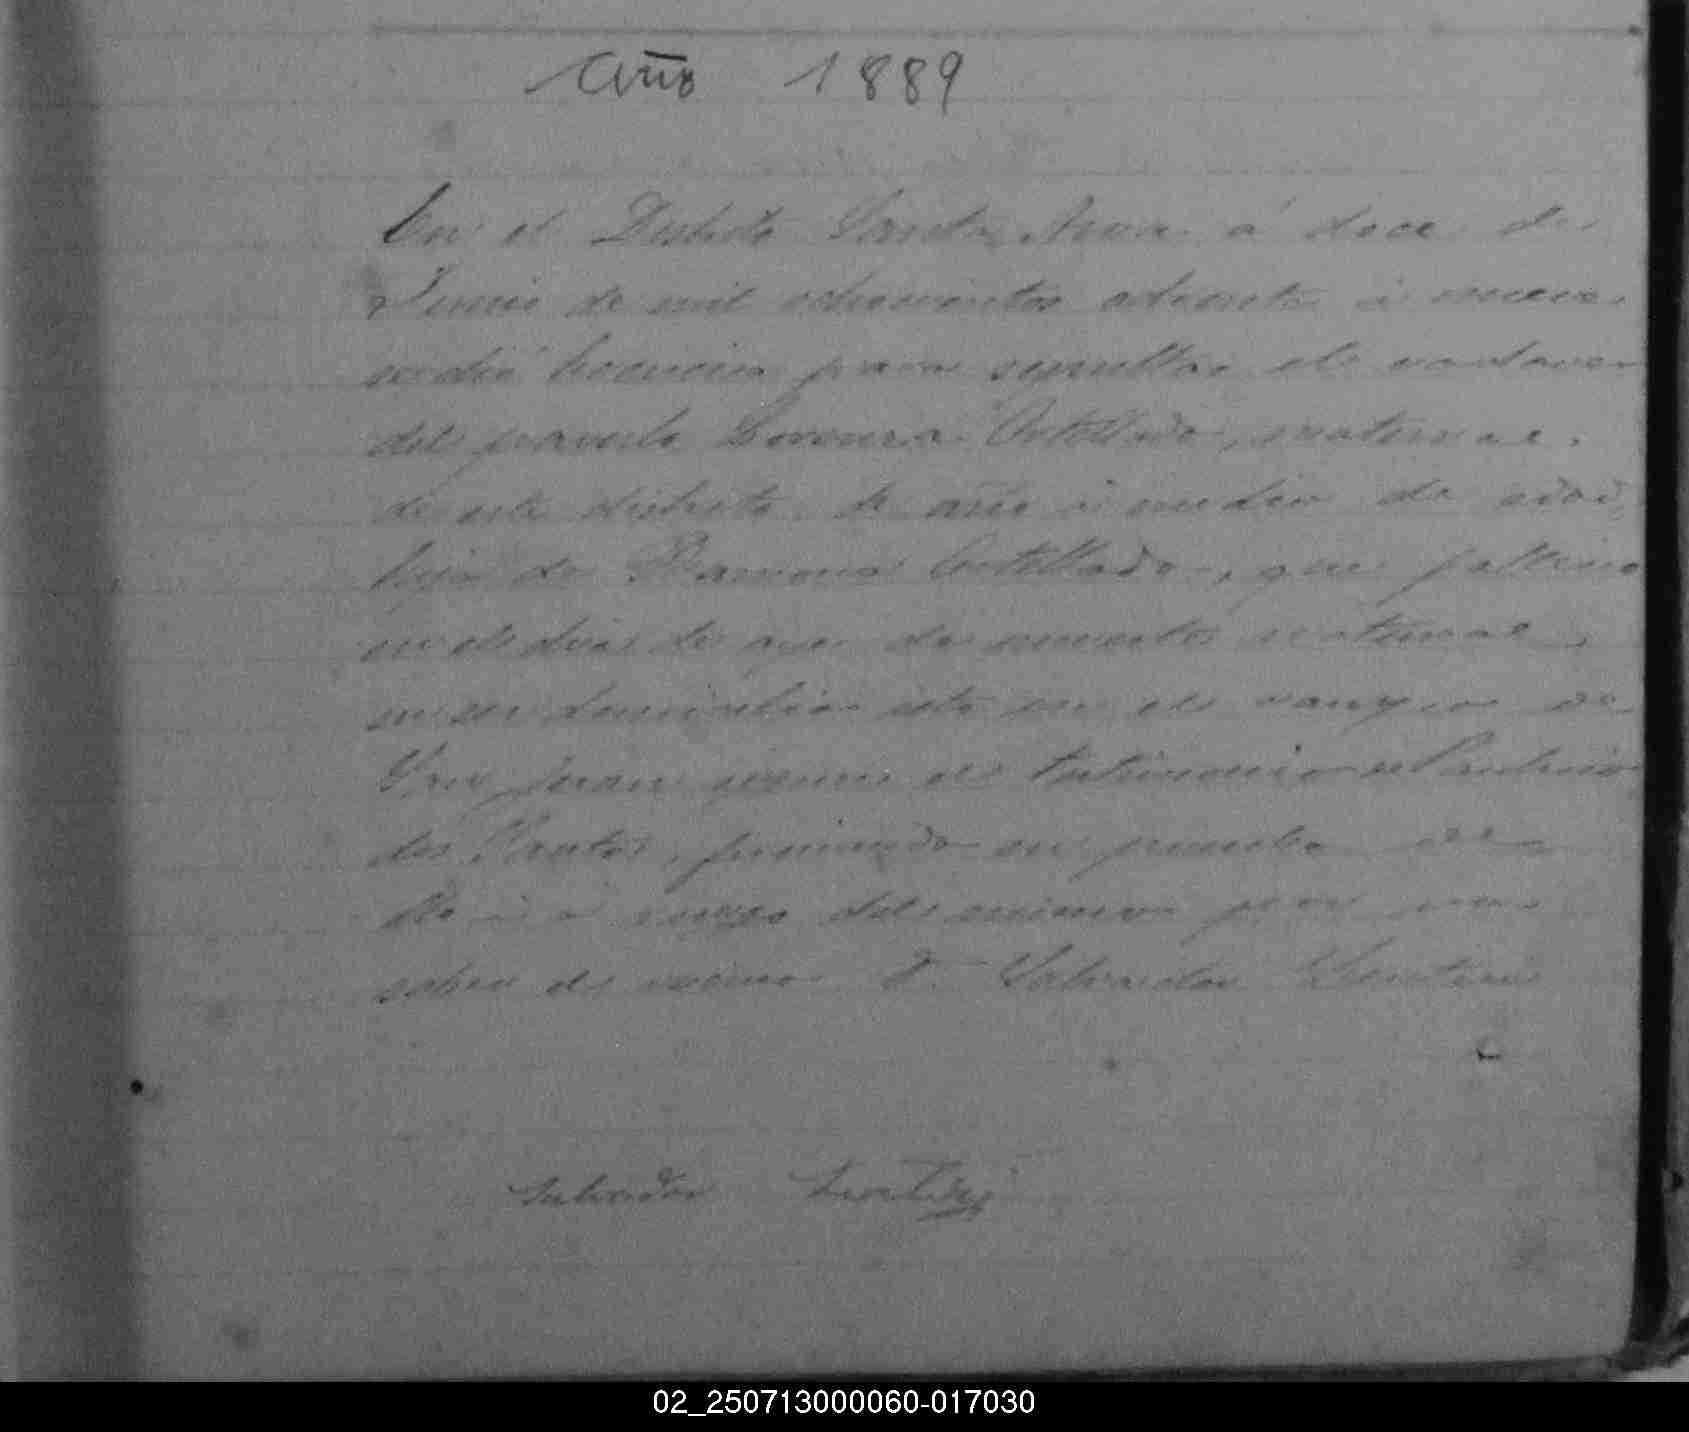 Año 1889
En el Distrito Santa Ana á doce de
Junio de mil ochocientos ochenta i nueve
se dió licencia para sepultar el cadaver
del parvulo Lorenza Ortellado, natural
de este distrito de año i medio de edad
hija de Ramona Ortellado, que fallecio
en el dia de de muerte natural
en su domicilio sito en el de
San Juan segun el testimonio de
dos Santos, firmando en prueba de
ello i á ruego del mismo por no
saber el vecino D. Salvador
Salvador
02_250713000060-017030